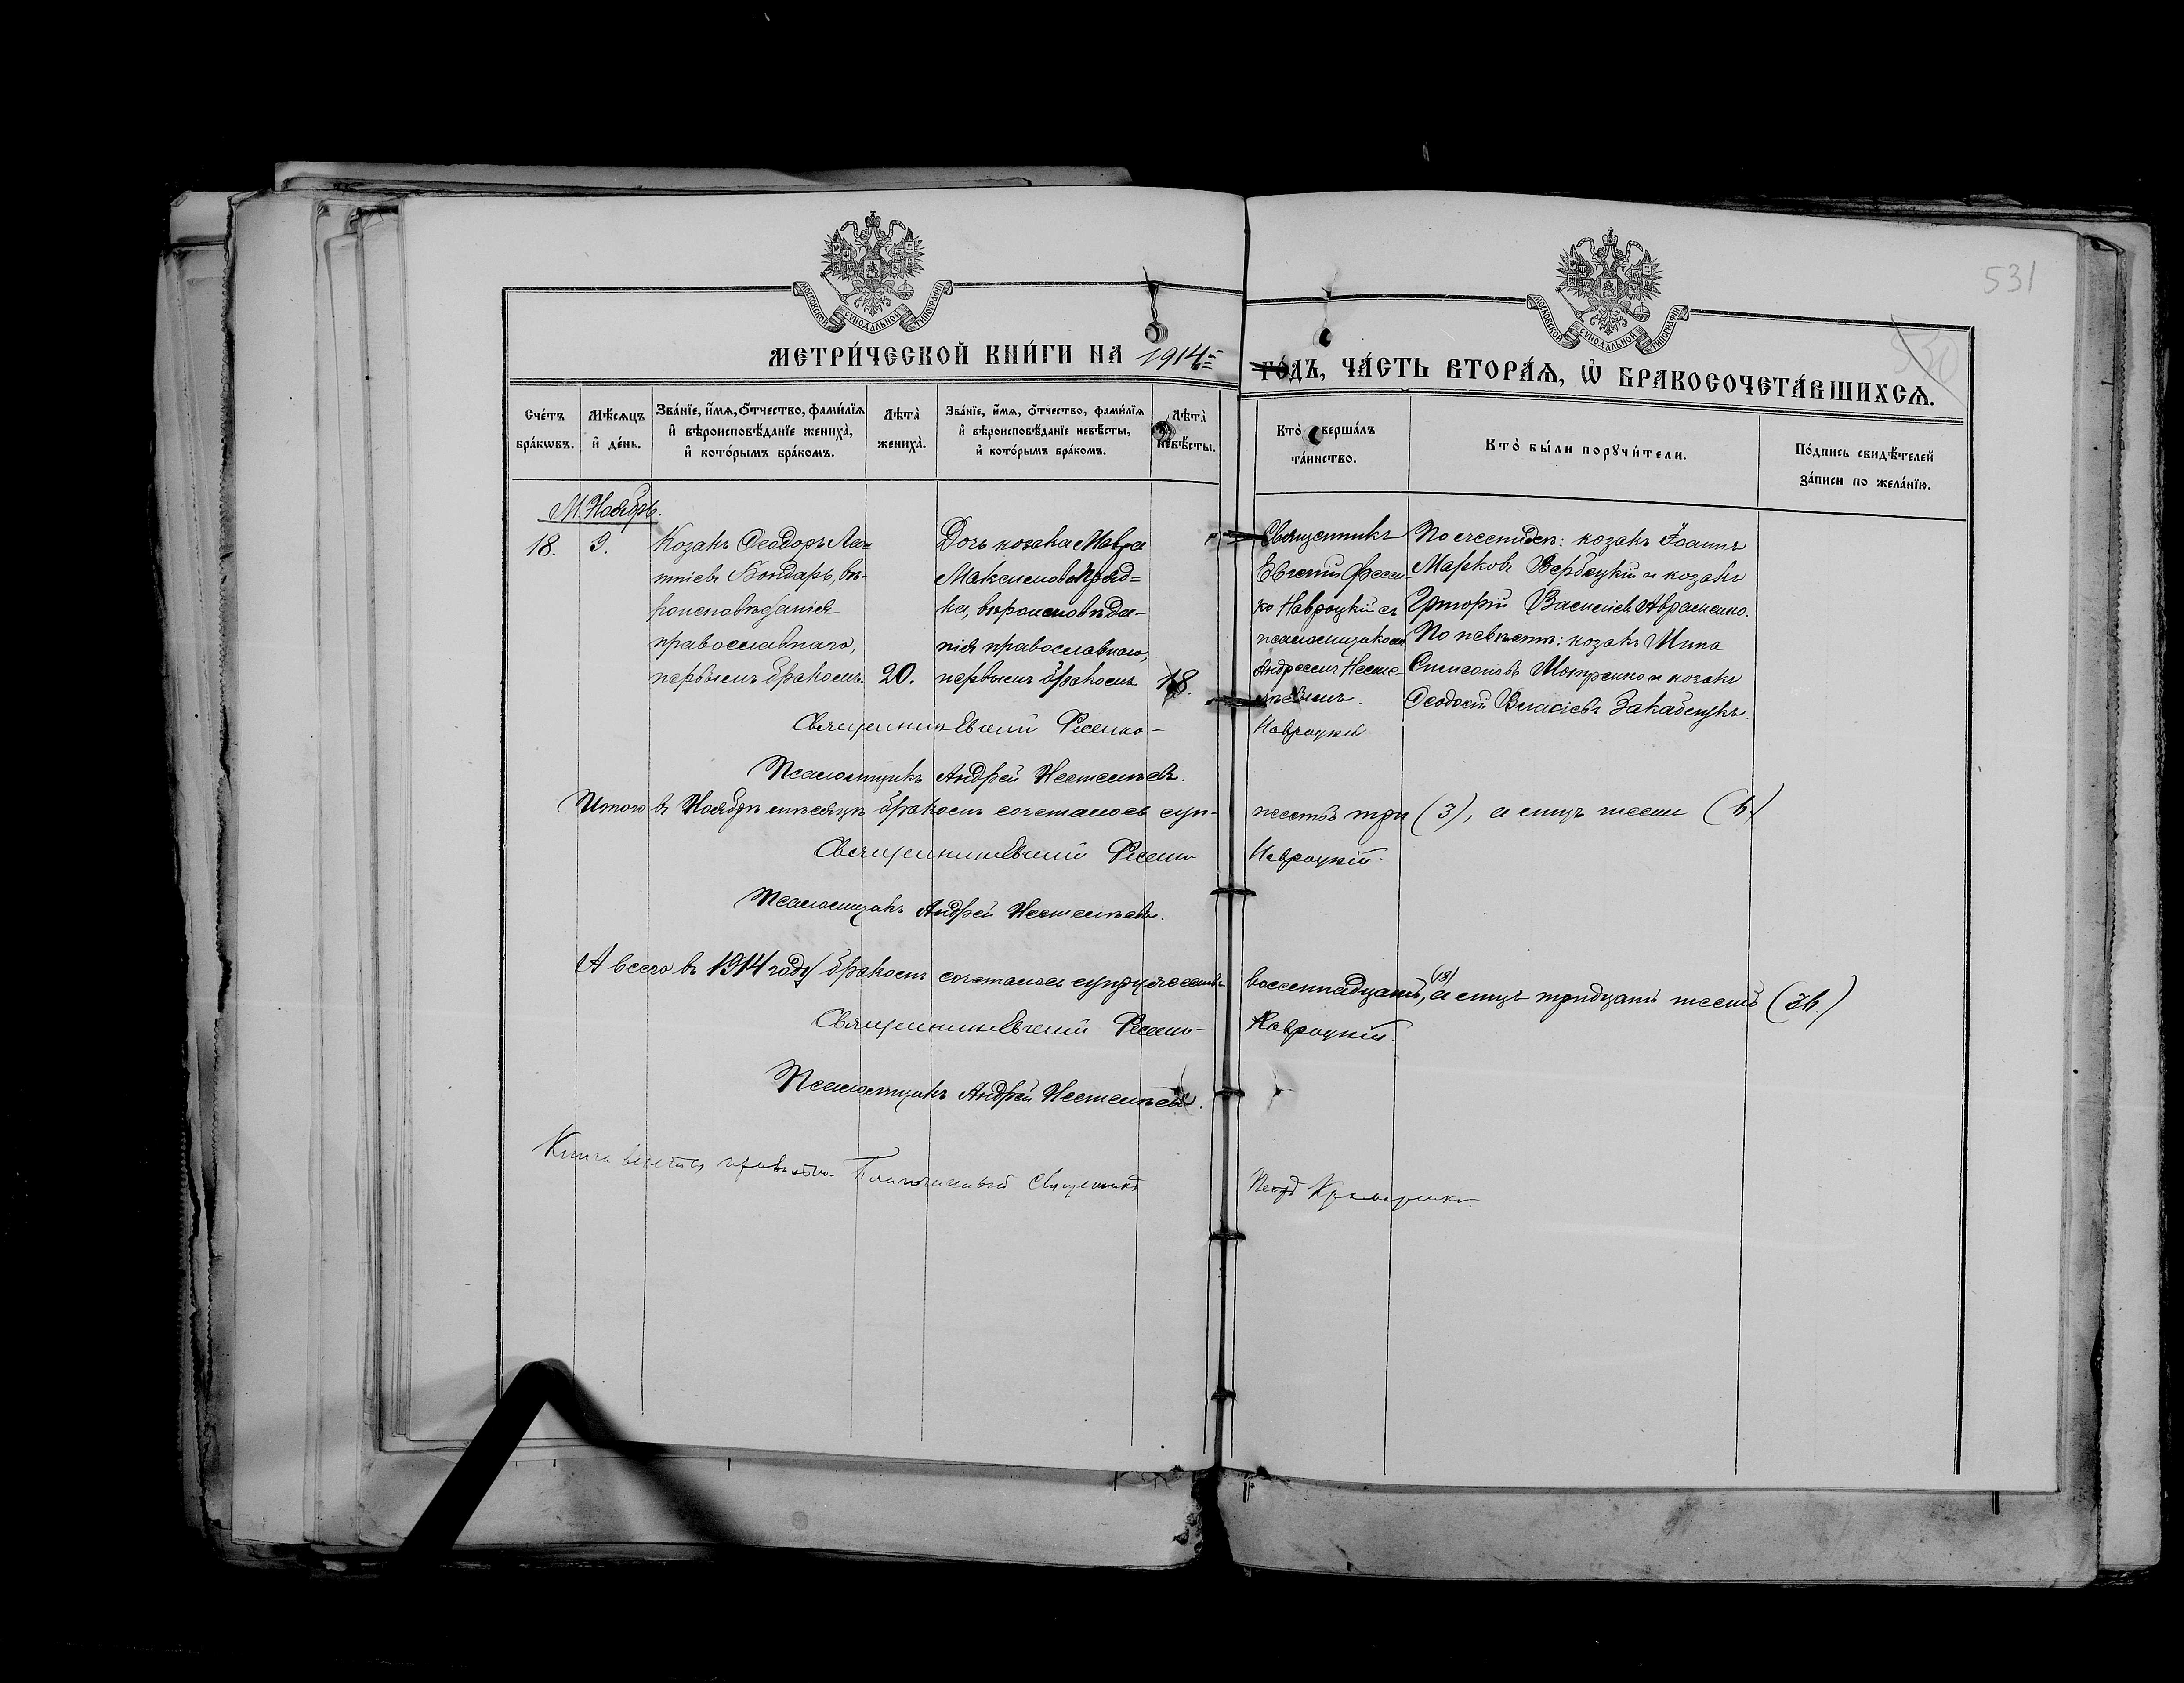 531
МОСКОВСКОЙ СѴНОДАЛЬНОЙ ТИПОГРАФІИ
МОСКОВСКОЙ СѴНОДАЛЬНОЙ ТИПОГРАФІИ
МЕТРИ́ЧЕСКОЙ КНИ́ГИ НА 1914 ГО́ДЪ, ЧА́СТЬ ВТОРА́Я, Ѽ БРАКОСОЧЕТА́ВШИХСЯ.
Сче́тъ бра́кѡвъ.
Мѣ́сяцъ и҆ де́нь.
Зва́нїе, и҆́мя, ѻ҆́тчество, фами́лїя и҆ вѣроисповѣ́данїе жениха̀, и҆ кото́рымъ бра́комъ.
Лѣта̀ жениха̀.
Зва́нїе, и҆́мя, ѻ҆́тчество, фами́лїя и҆ вѣроисповѣ́данїе невѣ́сты, и҆ кото́рымъ бра́комъ.
Лѣта̀ невѣ́сты.
Кто̀ соверша́лъ та́инство.
Кто̀ бы́ли порꙋчи́тели.
По́дпись свидѣ́телей за́писи по жела́нїю.
М. Ноябрь.
18.
9.
Козакъ Ѳеодоръ Ла-
птіевъ Бондарь, вѣ-
роисповѣданія
православнаго,
первымъ бракомъ.
20.
Дочь козака Мавра
Максимова
ка, вѣроисповѣда-
нія православнаго,
первымъ бракомъ
18.
Священникъ
Евгеній Фесен-
ко-Навроцкій съ
псаломщикомъ
Андреемъ Несте-
По женихѣ: козакъ Іоаннъ
Марковъ Вербецкій и козакъ
Григорій Василіевъ Авраменко.
По невѣстѣ: козакъ Мина
Симеоновъ и козакъ
Ѳеодосій Власіевъ
Священникъ Евгеній Фесенко-Навроцкій
Псаломщикъ Андрей
Итого въ Ноябрѣ мѣсяцѣ бракомъ сочеталось супружествъ три (3), а лицъ шесть (6.)
Священникъ Евгеній Фесенко Навроцкій.
Псаломщикъ Андрей
А всего въ 1914 году бракомъ сочеталось супружествъ восемнадцать, (18) а лицъ тридцать шесть (36.)
Священникъ Евгеній Фесенко-Навроцкій.
Псаломщикъ Андрей
Книга ведется правильно. Благочинный Священникъ Петръ